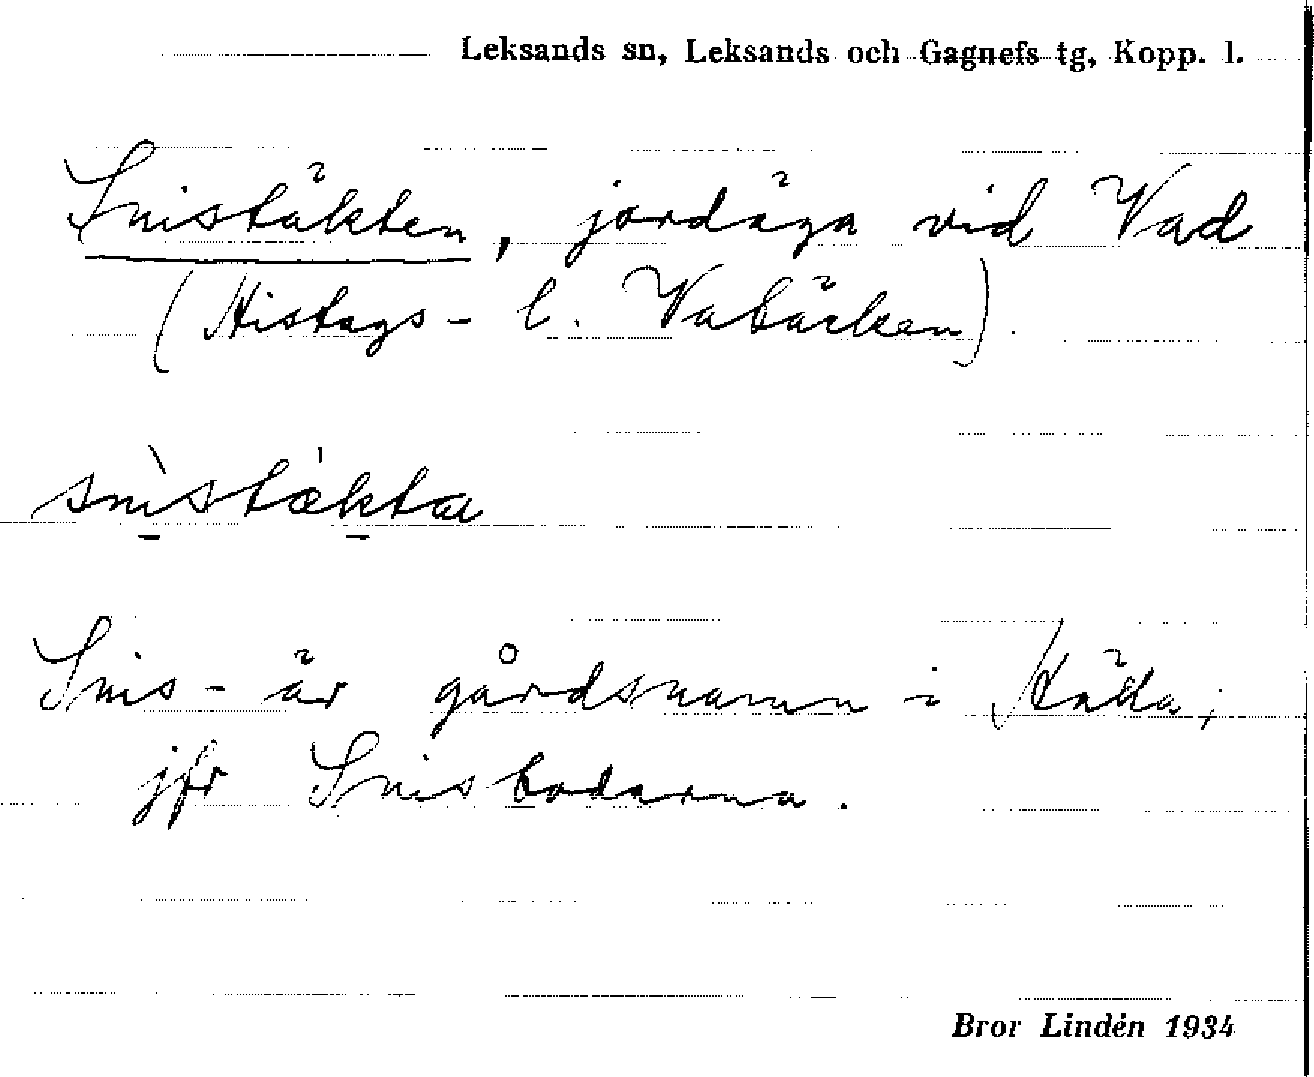 Leksands sn, Leksands och Gagnefs tg, Kopp. l.
Snistäkten, jordäga vid Vad
(Histags- l. Vabäcken).
snìstæ̀kta
Snis- är gårdsnamn i
jfr Snisbodarna.
Bror Lindén 1934